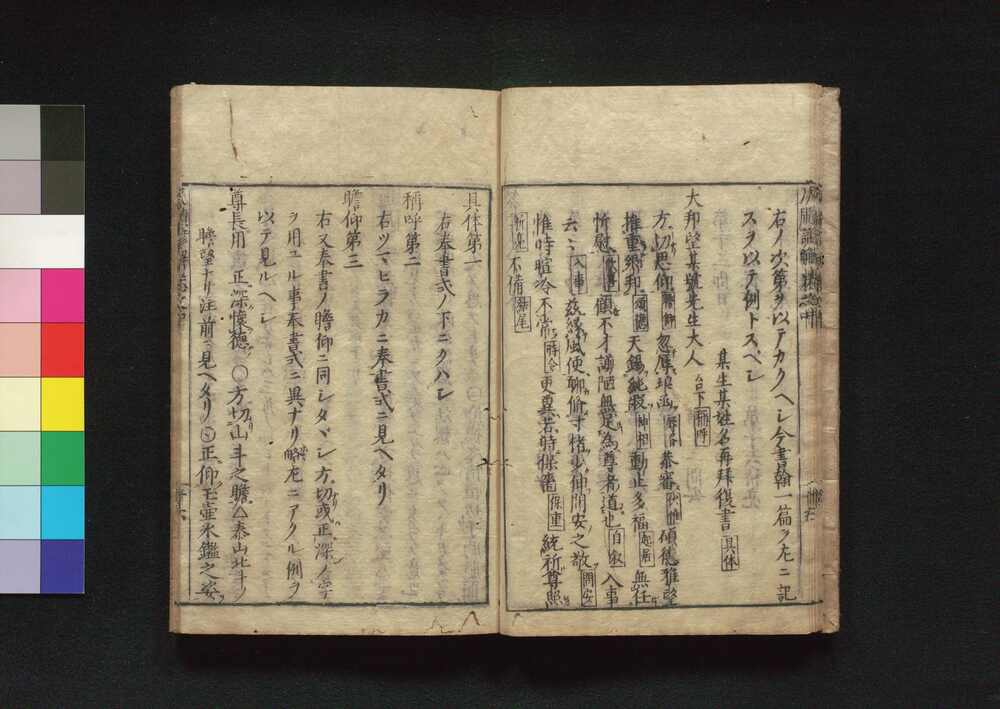 右ノ次第ヲ以テカクヘシ今書翰一篇ヲ左ニ記
スヲ以テ例トスベシ
某生某姓名再拜復書 具体
大邦望某號先生大人 台下 稱呼
方切思仰 瞻仰 忽辱琅函 恭審 傾德雅望
推重鄉邦 頌德 天錫純嘏 神相動止多福 起居 無任
忻慰 欣喜 顧不才謭陋無足為尊者道也 自叙 入事
云云 入事 茲緣風便聊脩寸楮少伸問安之敬 問安
惟時暄冷不常 時令 更冀若時保嗇 保重 統祈尊照
不備 結尾
具体第一
右奉書式ノ下ニクハシ
稱呼第二
右ツマヒラカニ奉書式ニ見ヘタリ
瞻仰第三
右又奉書ノ瞻仰ニ同シタヾシ方切或正深ノ字
ヲ用ユル事奉書式ニ異ナリ略左ニアクル例ヲ
以テ見ルヘシ
尊長用 正深懷德 〇方切山斗之瞻 泰山北斗ノ
瞻望ナリ注前ニ見ヘタリ〇正仰玉壺氷鑑之姿